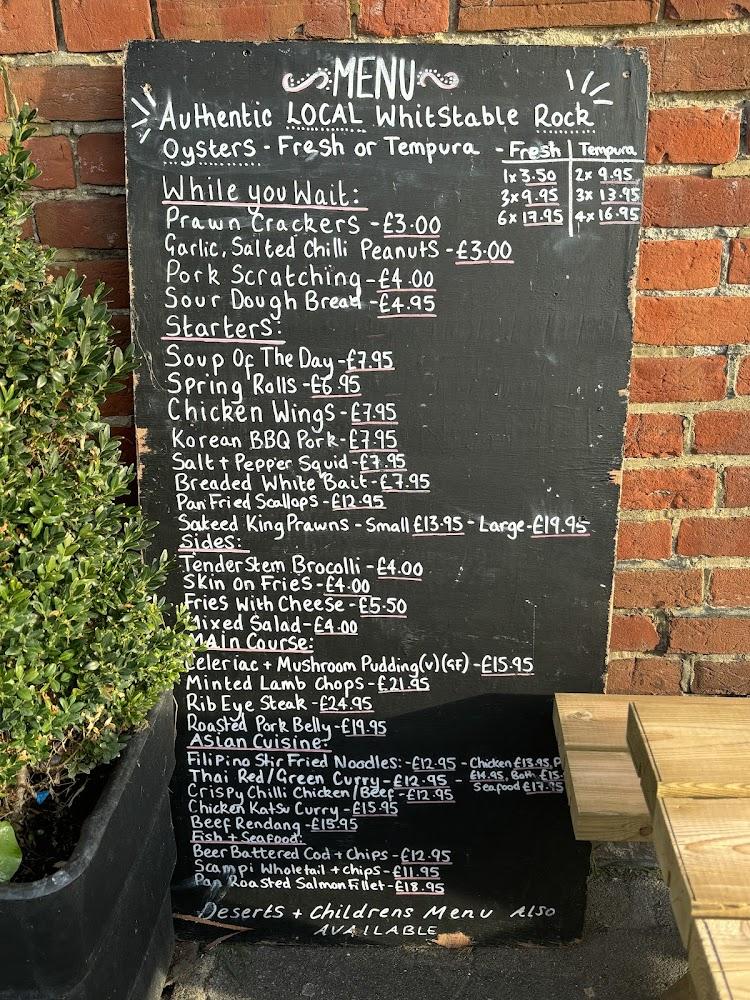 MENU
Authentic LOCAL Whitstable Rock
Oysters - Fresh or Tempura - Fresh Tempura
1x 3.50 2x 9.95
3x 9.95 3x 13.95
6x 17.95 4x 16.95
While you Wait:
Prawn Crackers - £3.00
Garlic, Salted Chilli Peanuts - £3.00
Pork Scratching - £4.00
Sour Dough Bread - £4.95
Starters:
Soup Of The Day - £7.95
Spring Rolls - £6.95
Chicken Wings - £7.95
Korean BBQ Pork - £7.95
Salt + Pepper Squid - £7.95
Breaded White Bait - £7.95
Pan Fried Scallops - £12.95
Sakeed King Prawns - Small £13.95 - Large - £19.95
Sides:
Tender Stem Brocolli - £4.00
Skin on Fries - £4.00
Fries With Cheese - £5.50
Mixed Salad - £4.00
Main Course:
Celeriac + Mushroom Pudding (v) (GF) - £15.95
Minted Lamb Chops - £21.95
Rib Eye Steak - £24.95
Roasted Pork Belly - £19.95
Asian Cuisine:
Filipino Stir Fried Noodles: - £12.95 - Chicken £13.95, P
Thai Red/Green Curry - £12.95 - £14.95, Both £15.
Crispy Chilli Chicken/Beef - £12.95 Seafood £17.95
Chicken Katsu Curry - £15.95
Beef Rendang - £15.95
Fish + Seafood:
Beer Battered Cod + Chips - £12.95
Scampi Wholetail + chips - £11.95
Pan Roasted Salmon Fillet - £18.95
Deserts + Childrens Menu Also
AVAILABLE